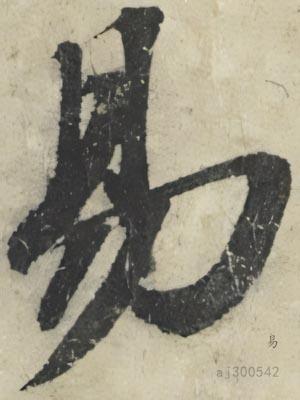 易
易
aj300542